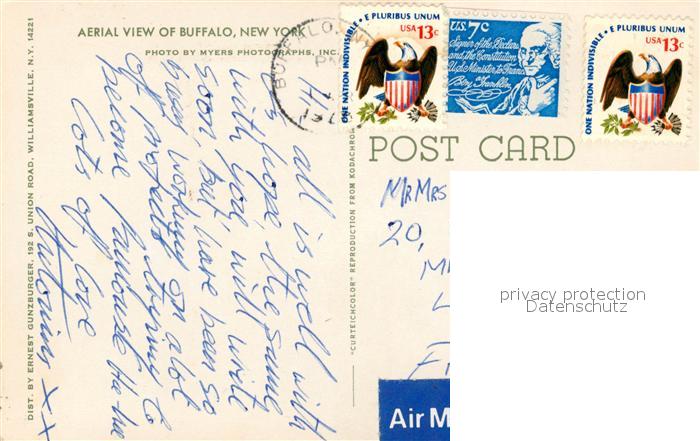 AERIAL VIEW OF BUFFALO, NEW YORK
PHOTO BY MYERS PHOTOGRAPHS, INC.
DIST. BY ERNEST GUNZBURGER, 192 S. UNION ROAD, WILLIAMSVILLE, N.Y. 14221
"CURTEICHCOLOR" REPRODUCTION FROM KODACHROME
BUFFALO, NY
PM
ONE NATION INDIVISIBLE • E PLURIBUS UNUM
USA 13c
U.S. 7c
Signer of the Declara
and the Constitution
U.S. Minister to France
Benj. Franklin
ONE NATION INDIVISIBLE • E PLURIBUS UNUM
USA 13c
POST CARD
Hi
all is well with
us, hope the same
with you, will write
soon, but have been so
busy working on a lot
of
trying to
become
Lots of love
xx
Mr Mrs
20,
Air M
privacy protection
Datenschutz